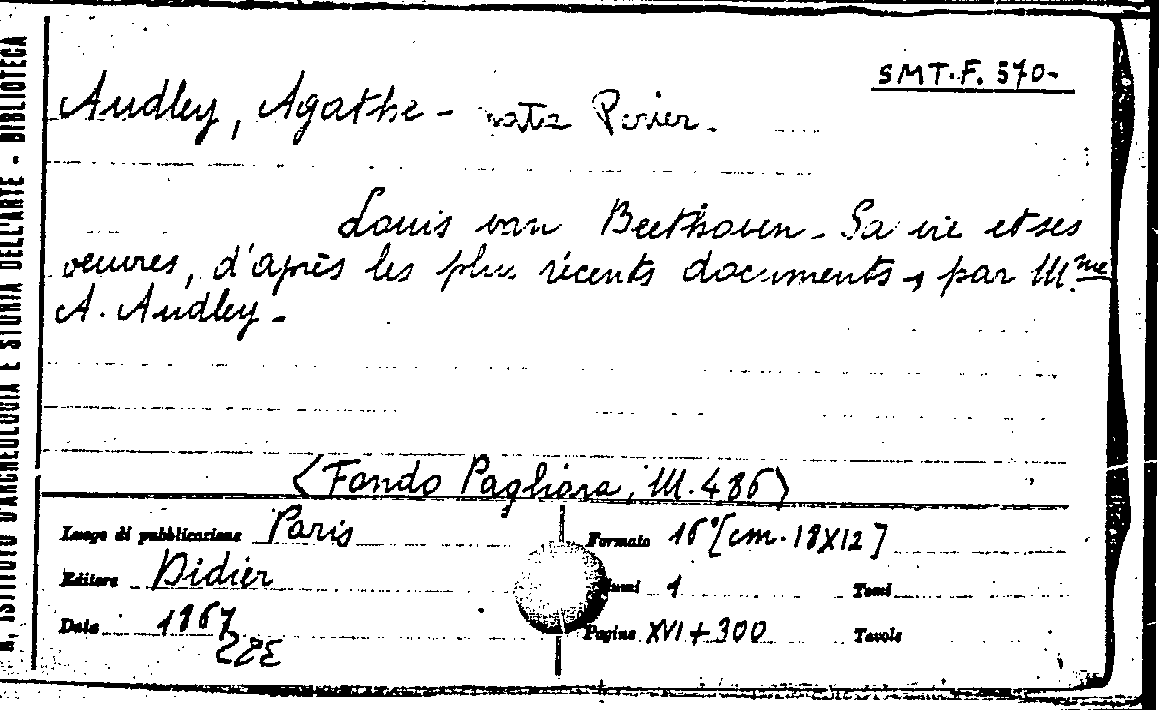 SMT.F. 570-
Audley, Agathe - nata Périer.
Louis van Beethoven - Sa vie et ses
oeuvres, d'après les plus récents documents, par M.me
A. Audley -
(Fondo Pagliara, M. 486)
Luogo di pubblicazione Paris
Formato 16° [cm. 18X12]
Editore Didier
Volumi 1 Tomi
Data 1867
Pagine XVI + 300 Tavole
R. ISTITUTO D'ARCHEOLOGIA E STORIA DELL'ARTE - BIBLIOTECA